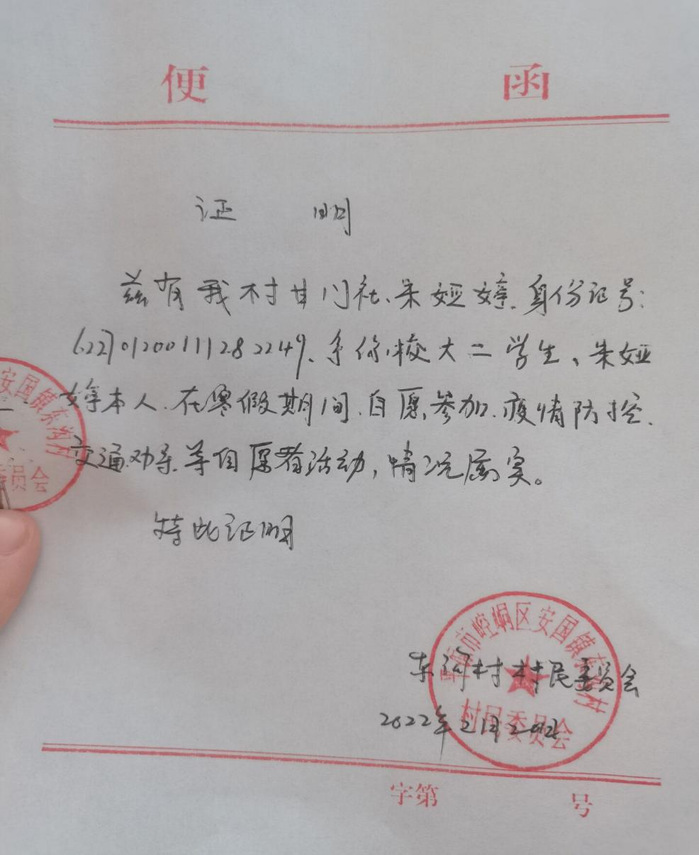 便 函
证 明
兹有我村甘门社.朱娅婷.身份证号:
622701200111282249.系你校大二学生、朱娅
婷本人.在寒假期间.自愿.参加.疫情防控.
交通.劝导.等自愿者活动，情况属实。
特此证明
安国镇东沟村
委员会
平凉市崆峒区安国镇东沟村
东沟村村民委员会
村民委员会
2022年2月20日
字第 号